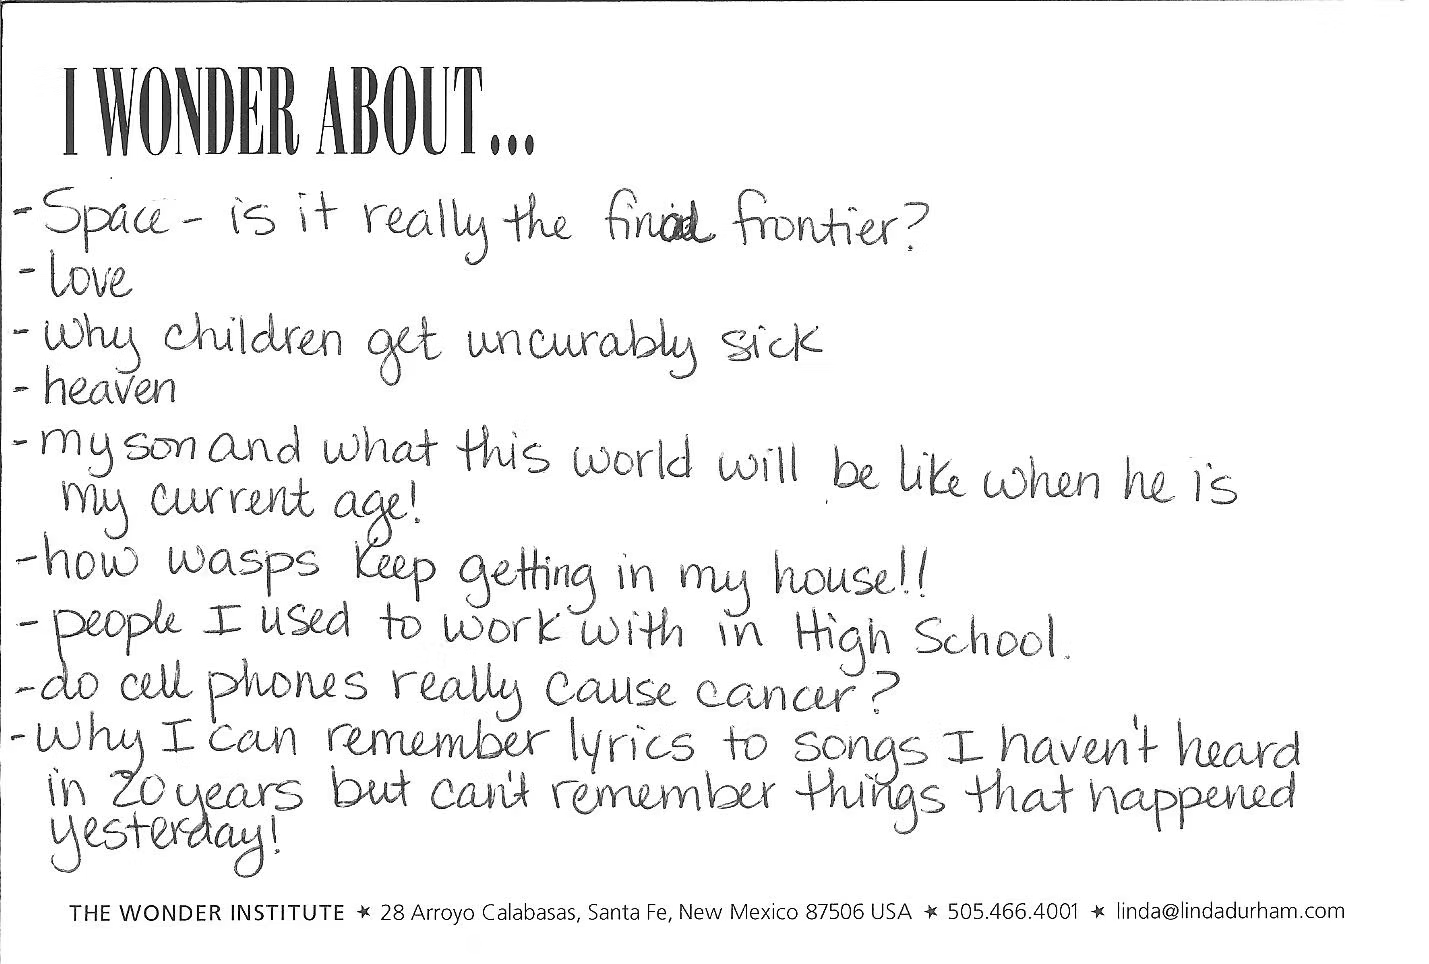 I WONDER ABOUT...
- Space - is it really the final frontier?
- love
- why children get uncurably sick
- heaven
- my son and what this world will be like when he is
my current age!
- how wasps keep getting in my house!!
- people I used to work with in High School.
- do cell phones really cause cancer?
- why I can remember lyrics to songs I haven't heard
in 20 years but can't remember things that happened
yesterday!
THE WONDER INSTITUTE ★ 28 Arroyo Calabasas, Santa Fe, New Mexico 87506 USA ★ 505.466.4001 ★ linda@lindadurham.com